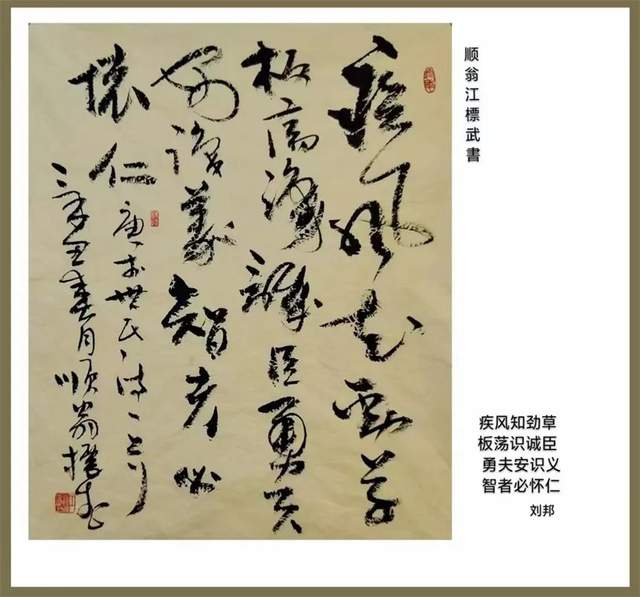 疾風知勁草
板蕩識誠臣勇夫
安識義智者必
懷仁
唐李世民詩
春月順翁標武
顺翁江標武書
疾风知劲草
板荡识诚臣
勇夫安识义
智者必怀仁
刘邦